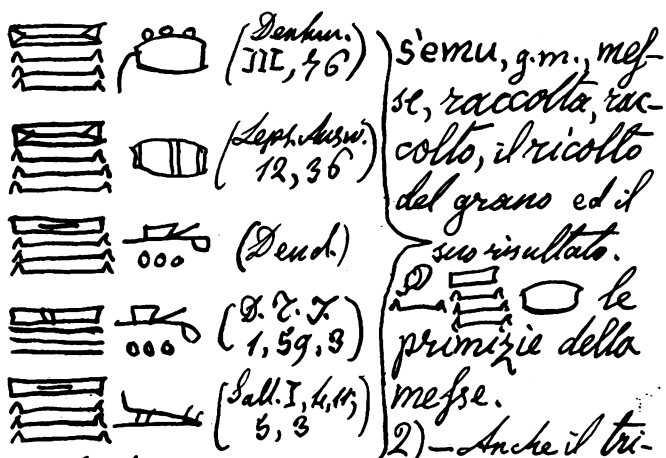 (Denkm.
III, 76)
(Leps. Ausw.
12, 36)
(Dend.)
(D. T. I.
1, 59, 3)
(Sall. I, 4, 11;
5, 3)
šemu, g.m., mes-
se, raccolta, rac-
colto, il ricolto
del grano ed il
suo risultato.
le
primizie della
messe.
2) — Anche il tri-